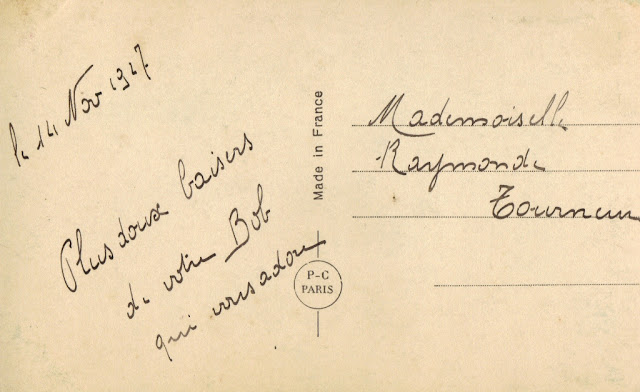 le 14 Nov 1927
Plus doux baisers
de votre Bob
qui vous adore
Made in France
P-C
PARIS
Mademoiselle
Raymonde
Tourneur